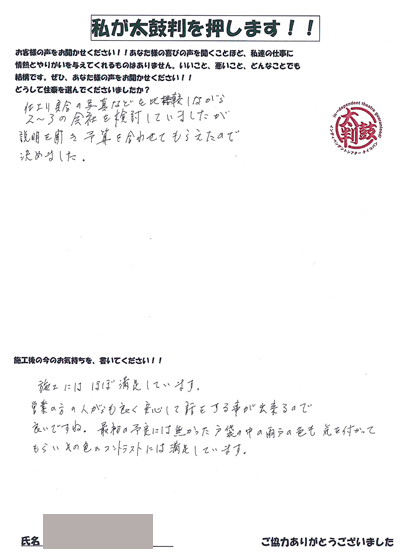 私が太鼓判を押します！！
お客様の声をお聞かせください！！あなた様の喜びの声を聞くことほど、私達の仕事に
情熱とやりがいを与えてくれるものはありません。いいこと、悪いこと、どんなことでも
結構です。ぜひ、あなた様の声をお聞かせください！！
どうして住豪を選んでくださいましたか？
仕上り具合の写真などを比較しながら
2〜3の会社を検討していましたが
説明を聞き予算を合わせてもらえたので
決めました。
太鼓判
施工後の今のお気持ちを、書いてください！！
施工にはほぼ満足しています。
営業の方の人がらも良く安心して話をする事が出来るので
良いですね。最初の予定には無かった戸袋の中の雨戸の色も気を付かって
もらいその色のコントラストには満足しています。
氏名
ご協力ありがとうございました